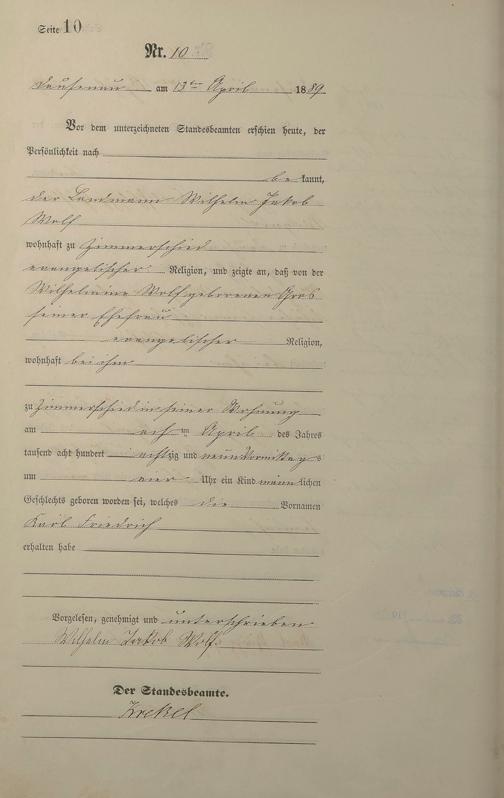 Seite 10
Nr. 10
Dausenau am 13ten April 1889
Vor dem unterzeichneten Standesbeamten erschien heute, der
Persönlichkeit nach
be kannt,
der Landmann Wilhelm Jakob
Wolf
wohnhaft zu Zimmerschied
evangelischer Religion, und zeigte an, daß von der
Wilhelmine Wolf geborenen
seiner Ehefrau
evangelischer Religion,
wohnhaft bei ihm
zu Zimmerschied in seiner Wohnung
am April des Jahres
tausend acht hundert achtzig und neun Vormittags
um vier Uhr ein Kind männlichen
Geschlechts geboren worden sei, welches die Vornamen
Karl Friedrich
erhalten habe
Vorgelesen, genehmigt und unterschrieben
Wilhelm Jakob Wolf
Der Standesbeamte.
Krekel